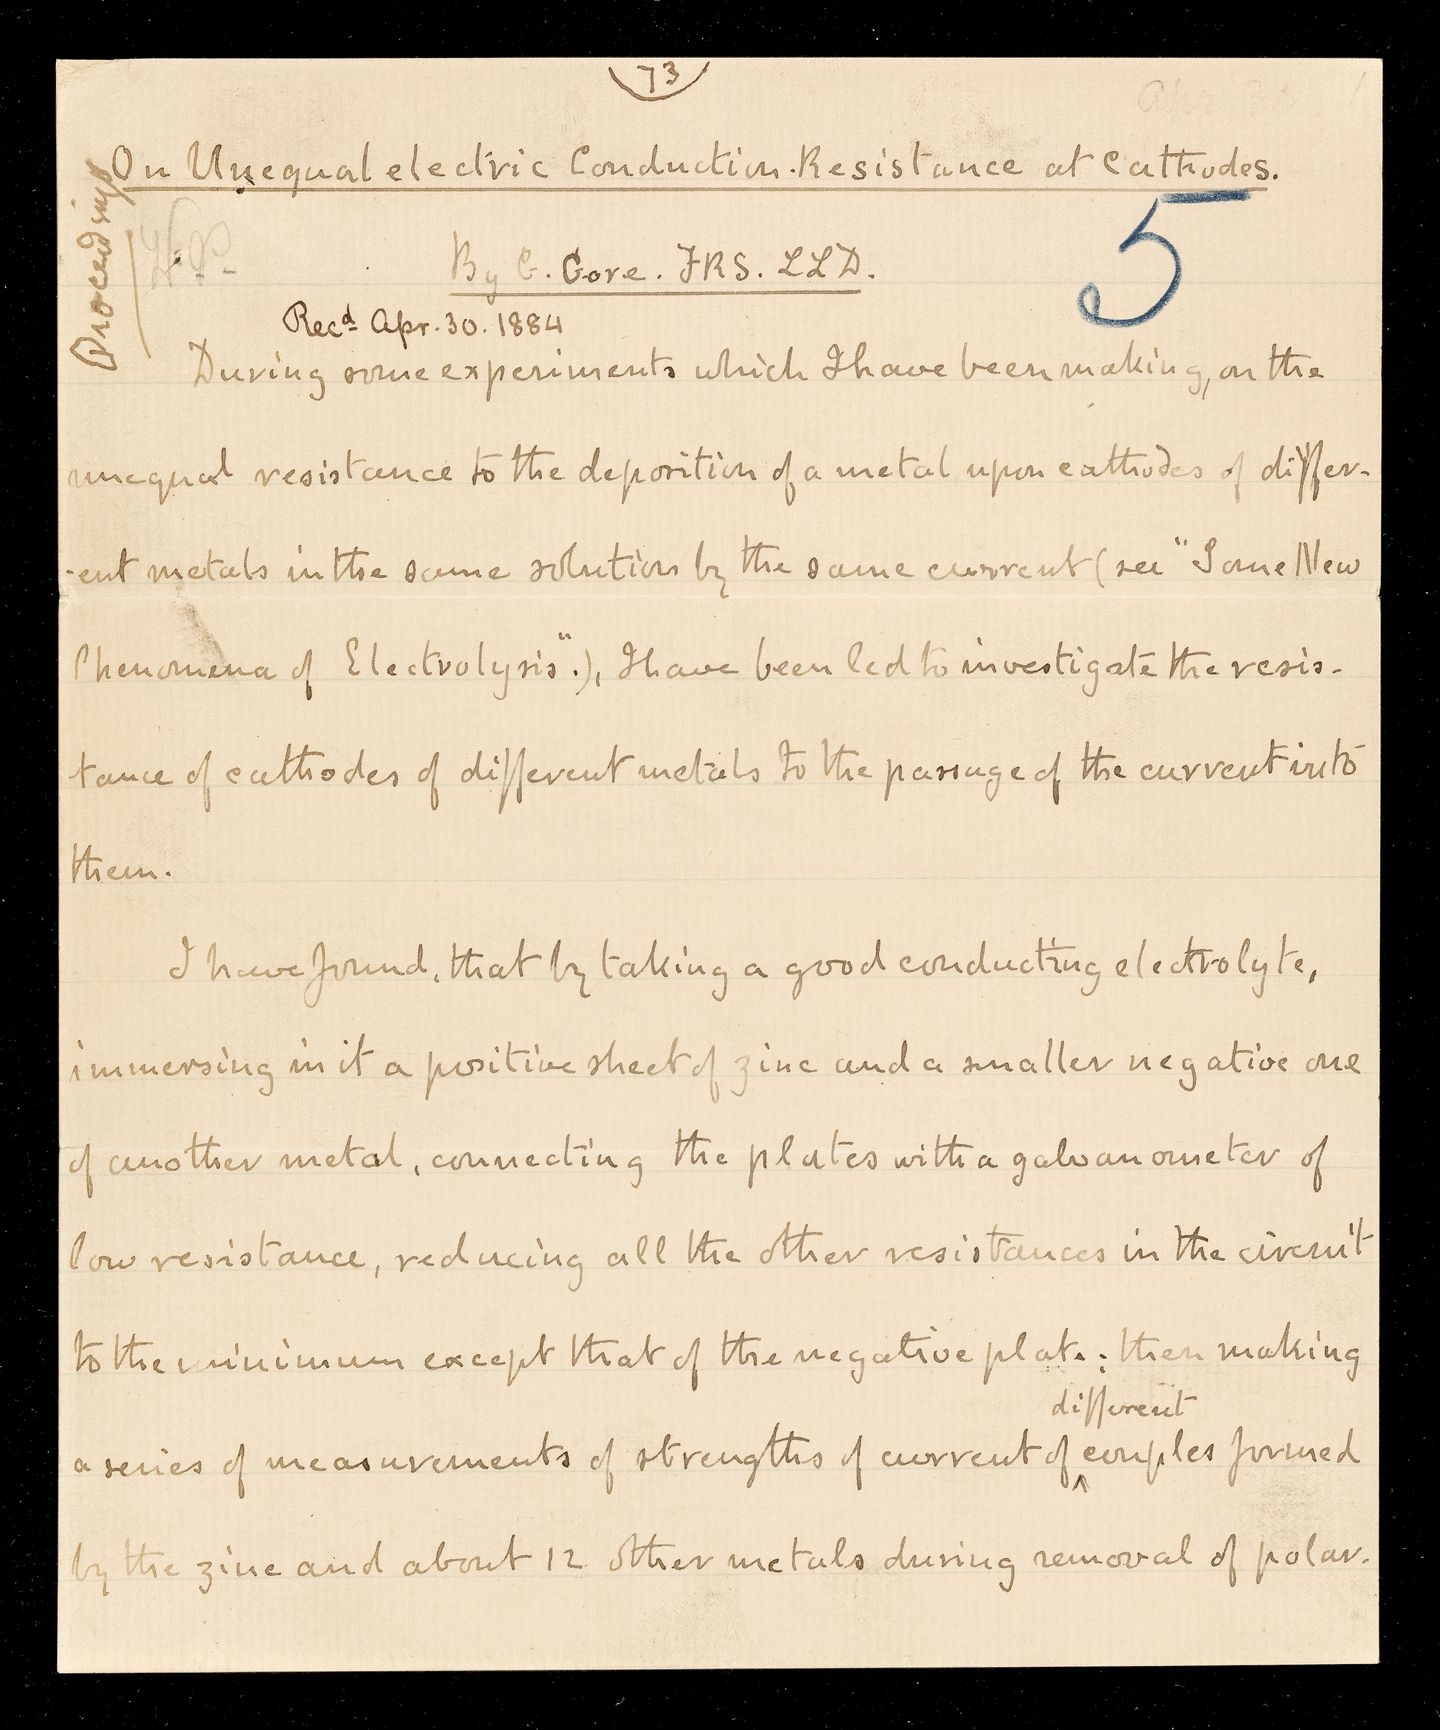 73
On Unequal electric Conduction-Resistance at Cathodes.
Proceedings
By G. Gore. FRS. LLD.
5
Recd Apr. 30. 1884
During some experiments which I have been making, on the
unequal resistance to the deposition of a metal upon cathodes of differ-
-ent metals in the same solution by the same current (see "Some New
Phenomena of Electrolysis".), I have been led to investigate the resis-
tance of cathodes of different metals to the passage of the current into
them.
I have found, that by taking a good conducting electrolyte,
immersing in it a positive sheet of zinc and a smaller negative one
of another metal, connecting the plates with a galvanometer of
low resistance, reducing all the other resistances in the circuit
to the minimum except that of the negative plate; then making
different
a series of measurements of strengths of current of couples formed
by the zinc and about 12 other metals during removal of polar-